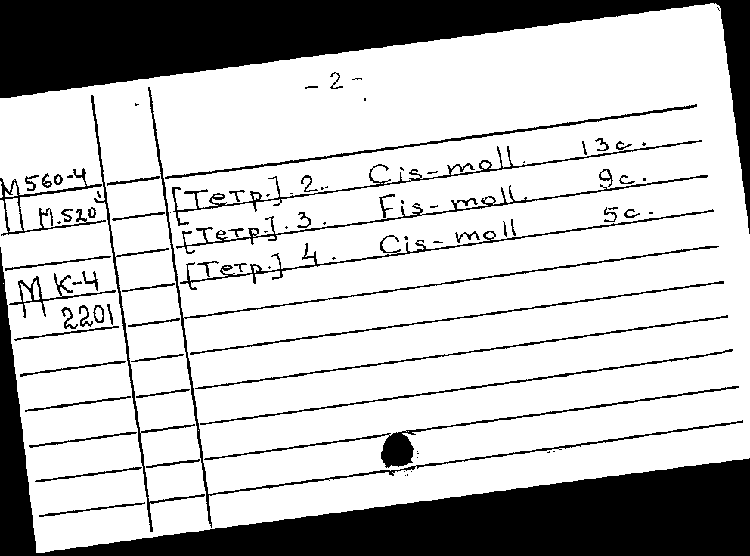 - 2 -
М 560-4
М.520
[Тетр.]. 2. Cis-moll. 13с.
[Тетр.] . 3. Fis-moll. 9с.
[Тетр.] 4. Cis-moll 5с.
М К-4
2201